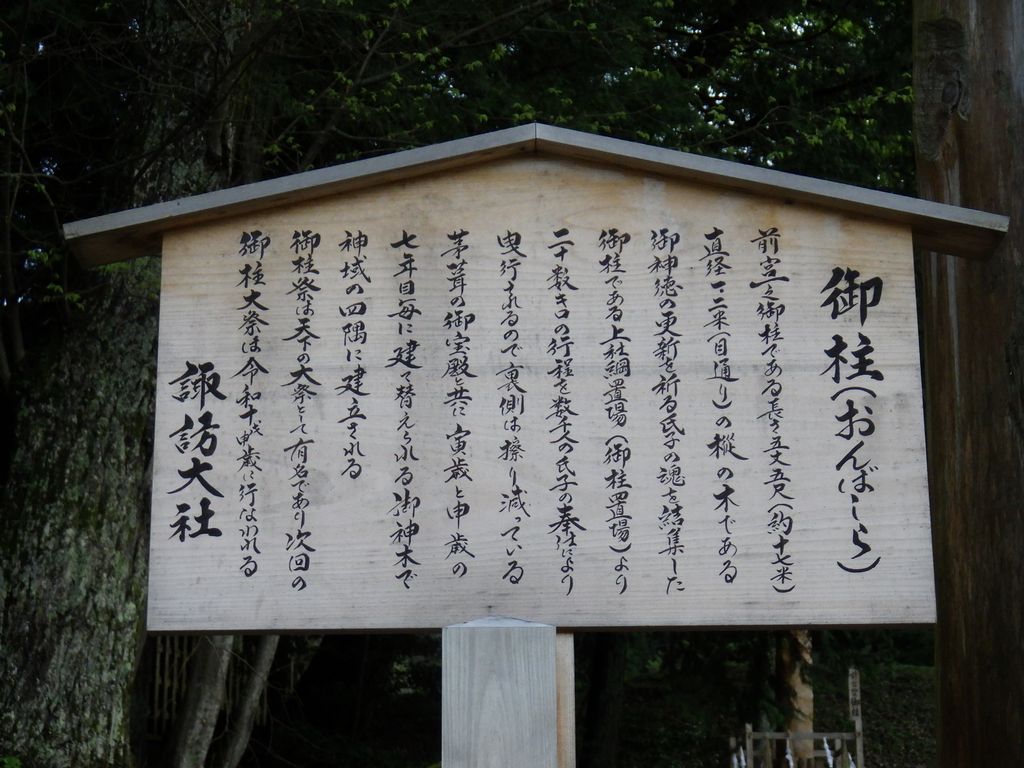 御柱(おんばしら)
前宮之御柱である長さ五丈五尺(約十七米)
直径一・二米(目通り)の樅の木である
御神徳の更新を祈る氏子の魂を結集した
御柱である上社綱置場(御柱置場)より
二十数キロの行程を数千人の氏子の奉仕により
曳行されるので裏側は擦り減っている
茅葺の御宝殿と共に寅歳と申歳の
七年目毎に建て替えられる御神木で
神域の四隅に建立される
御柱祭は天下の大祭として有名であり次回の
御柱大祭は令和十戊申歳に行はれる
諏訪大社